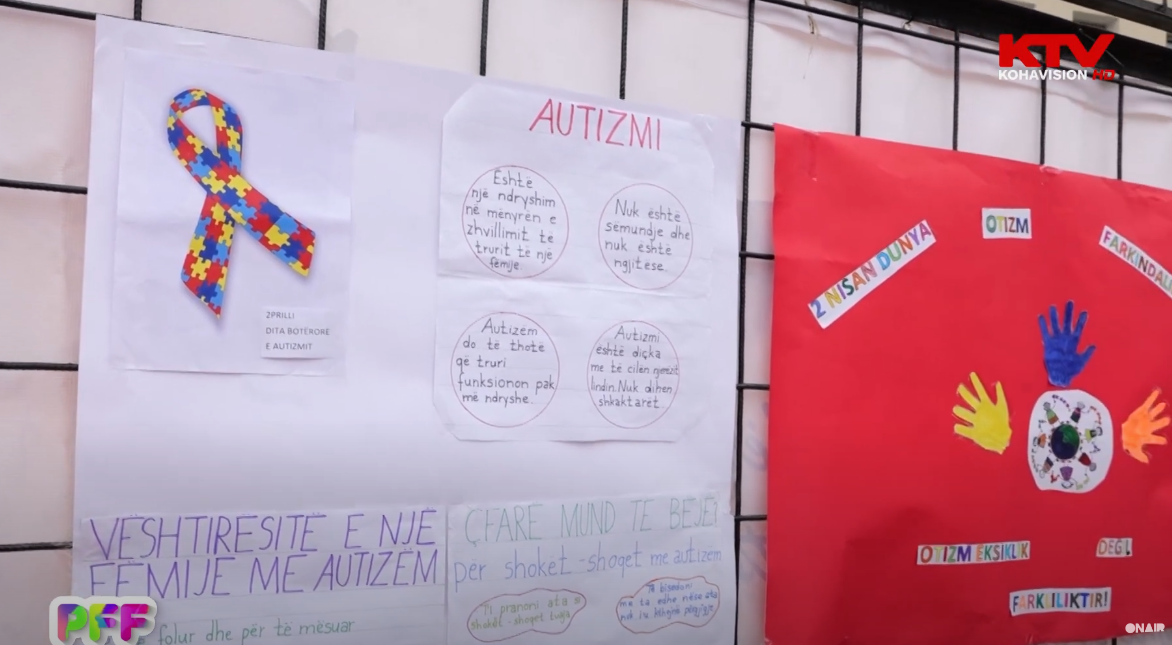 KTV
KOHAVISION HD
2PRILLI
DITA BOTËRORE
E AUTIZMIT
AUTIZMI
Është
një ndryshim
në mënyrën e
zhvillimit të
trurit të një
fëmije.
Nuk është
sëmundje dhe
nuk është
ngjitëse.
Autizëm
do të thotë
që truri
funksionon pak
më ndryshe.
Autizmi
është diçka
me të cilën njerëzit
lindin. Nuk dihen
shkaktarët.
VËSHTIRËSITË E NJË
FËMIJE ME AUTIZËM
folur dhe për të mësuar
ÇFARË MUND TË BËJË?
për shokët-shoqet me autizëm
Ti pranoni ata si
shokët-shoqet tuaja
Të bisedoni
me ta edhe nëse ata
nuk iu kthejnë përgjigje
2 NİSAN DÜNYA
OTİZM
FARKINDALI
OTİZM EKSİKLİK
DEĞİL
FARKLILIKTIR!
PFF
ONAIR